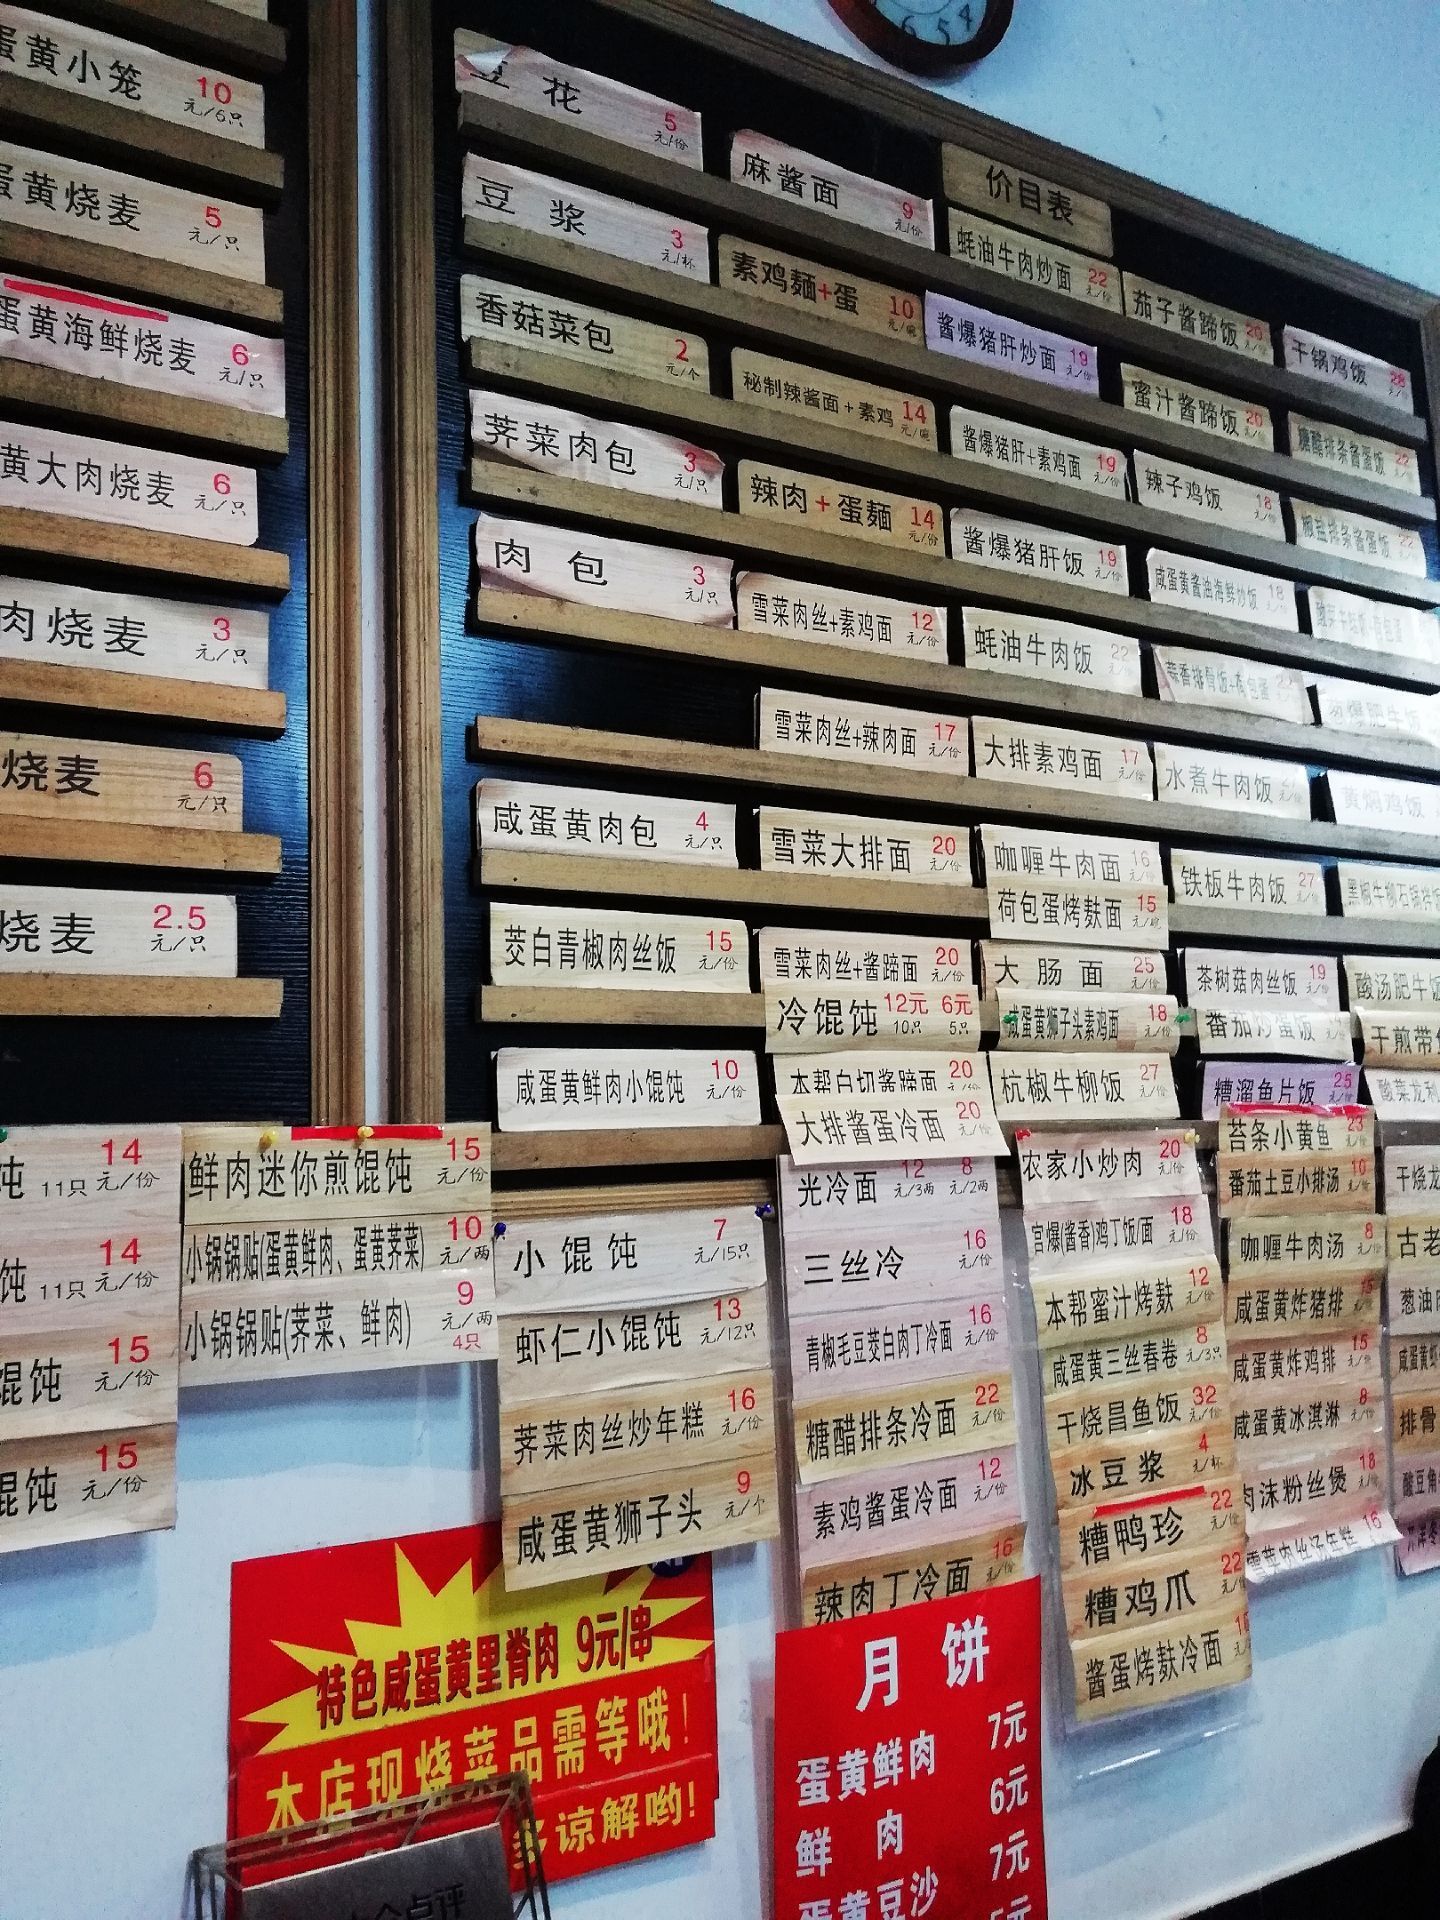 蛋黄小笼 10 元/6只
蛋黄烧麦 5 元/只
蛋黄海鲜烧麦 6 元/只
黄大肉烧麦 6 元/只
肉烧麦 3 元/只
烧麦 6 元/只
烧麦 2.5 元/只
饨 11只 14 元/份
饨 11只 14 元/份
馄饨 15 元/份
馄饨 15 元/份
鲜肉迷你煎馄饨 15 元/份
小锅锅贴(蛋黄鲜肉、蛋黄荠菜) 10 元/两
小锅锅贴(荠菜、鲜肉) 9 元/两 4只
豆花 5 元/份
豆浆 3 元/杯
香菇菜包 2 元/个
荠菜肉包 3 元/只
肉包 3 元/只
咸蛋黄肉包 4 元/只
茭白青椒肉丝饭 15 元/份
咸蛋黄鲜肉小馄饨 10 元/份
小馄饨 7 元/15只
虾仁小馄饨 13 元/12只
荠菜肉丝炒年糕 16 元/份
咸蛋黄狮子头 9 元/个
麻酱面 9 元/份
素鸡麺+蛋 10 元/碗
秘制辣酱面+素鸡 14 元/碗
辣肉+蛋麺 14 元/份
雪菜肉丝+素鸡面 12 元/份
雪菜肉丝+辣肉面 17 元/份
雪菜大排面 20 元/份
雪菜肉丝+酱蹄面 20 元/份
冷馄饨 12元 10只 6元 5只
本帮白切酱蹄面 20 元/份
大排酱蛋冷面 20 元/份
光冷面 12 元/3两 8 元/2两
三丝冷 16 元/份
青椒毛豆茭白肉丁冷面 16 元/份
糖醋排条冷面 22 元/份
素鸡酱蛋冷面 12 元/份
辣肉丁冷面 16 元/份
价目表
蚝油牛肉炒面 22 元/份
酱爆猪肝炒面 19 元/份
酱爆猪肝+素鸡面 19 元/份
酱爆猪肝饭 19 元/份
蚝油牛肉饭 22 元/份
大排素鸡面 17 元/份
咖喱牛肉面 16 元/份
荷包蛋烤麸面 15 元/碗
大肠面 25 元/份
咸蛋黄狮子头素鸡面 18 元/份
杭椒牛柳饭 27 元/份
农家小炒肉 20 元/份
宫爆(酱香)鸡丁饭/面 18 元/份
本帮蜜汁烤麸 12 元/份
咸蛋黄三丝春卷 8 元/3只
干烧昌鱼饭 32 元/份
冰豆浆 4 元/杯
糟鸭珍 22 元/份
糟鸡爪 22 元/份
酱蛋烤麸冷面
茄子酱蹄饭 20 元/份
蜜汁酱蹄饭 20 元/份
辣子鸡饭 18 元/份
咸蛋黄酱油海鲜炒饭 18 元/份
蒜香排骨饭+荷包蛋
水煮牛肉饭
铁板牛肉饭 27 元/份
茶树菇肉丝饭 19 元/份
番茄炒蛋饭
糟溜鱼片饭 25 元/份
苔条小黄鱼 23 元/份
番茄土豆小排汤 10 元/份
咖喱牛肉汤 8 元/份
咸蛋黄炸猪排 15
咸蛋黄炸鸡排 15 元/份
咸蛋黄冰淇淋 8 元/份
肉沫粉丝煲 18 元/份
雪菜肉丝汤年糕 16
干锅鸡饭 28
糖醋排条酱蛋饭 22
椒盐排条酱蛋饭 22
肥牛饭
黄焖鸡饭
黑椒牛柳石锅拌饭
酸汤肥牛饭
干煎带鱼
酸菜龙利
干烧龙
古老
葱油
咸蛋黄
排骨
酸豆角
特色咸蛋黄里脊肉 9元/串
本店现烧菜品需等哦!
多谅解哟!
月饼
蛋黄鲜肉 7元
鲜肉 6元
蛋黄豆沙 7元
5元